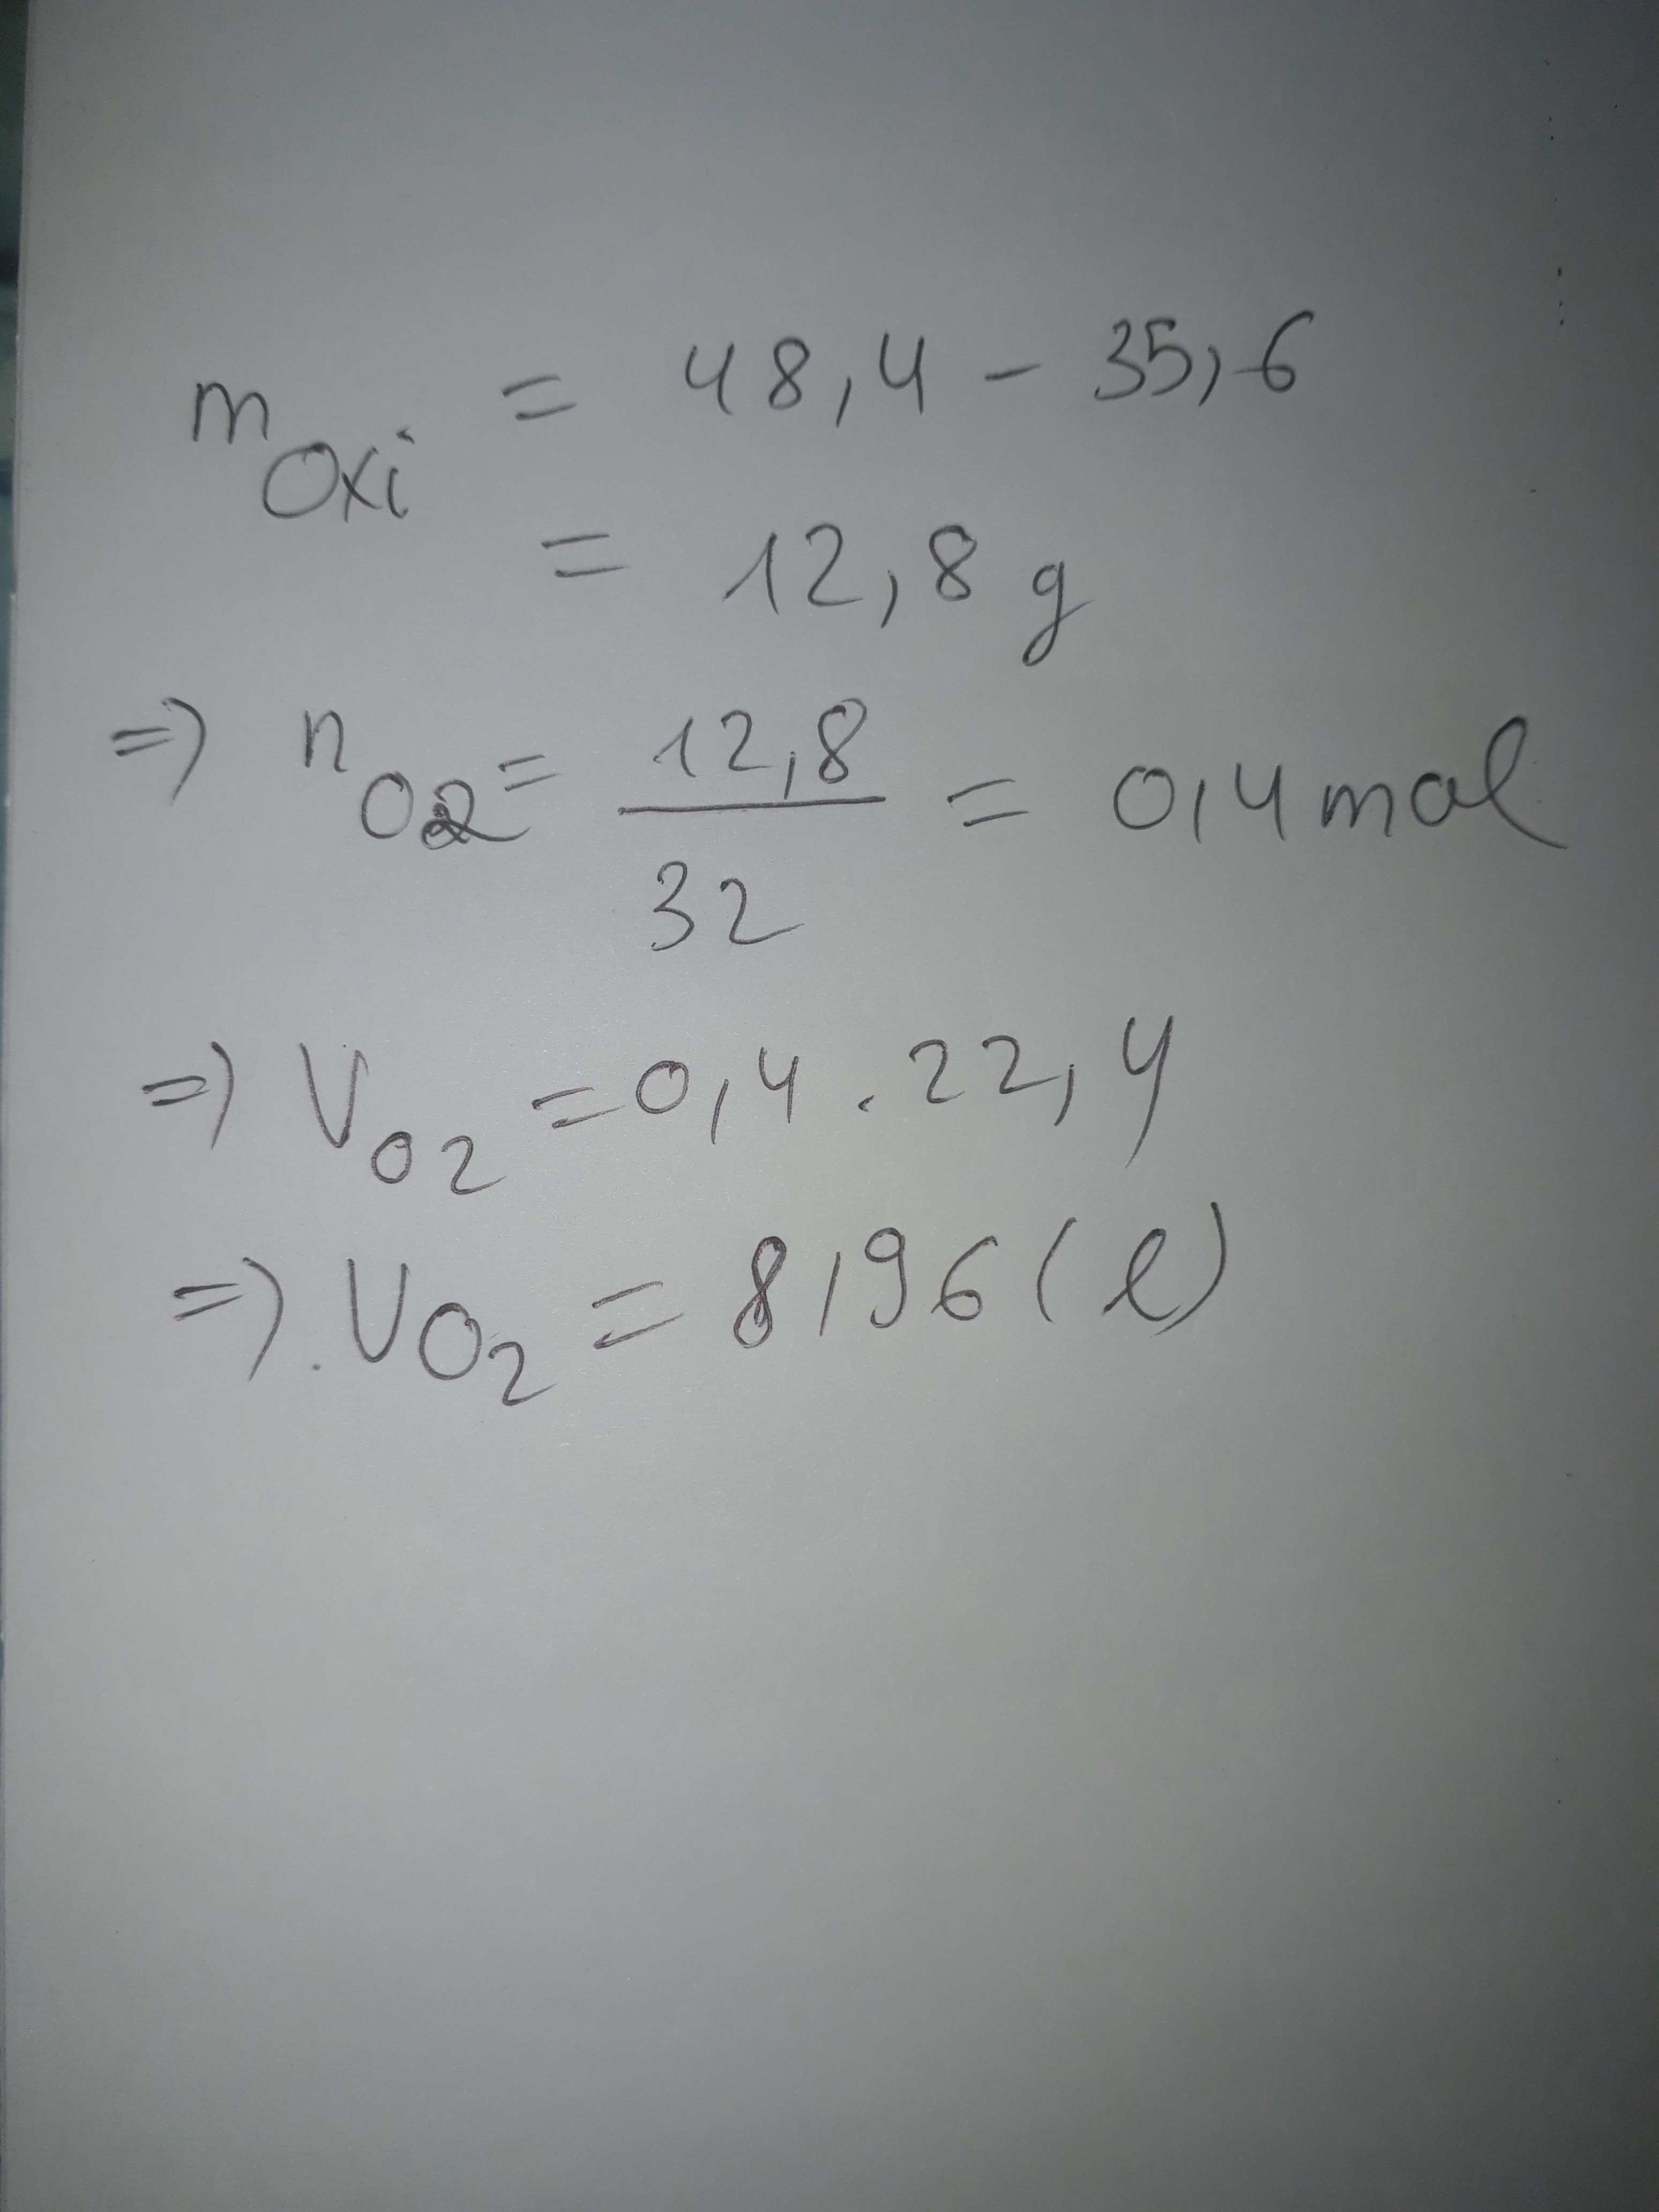 m Oxi = 48,4 - 35,6
= 12,8 g
=> n O2 = 12,8 / 32 = 0,4 mol
=> V O2 = 0,4 . 22,4
=> . V O2 = 8,96 (l)